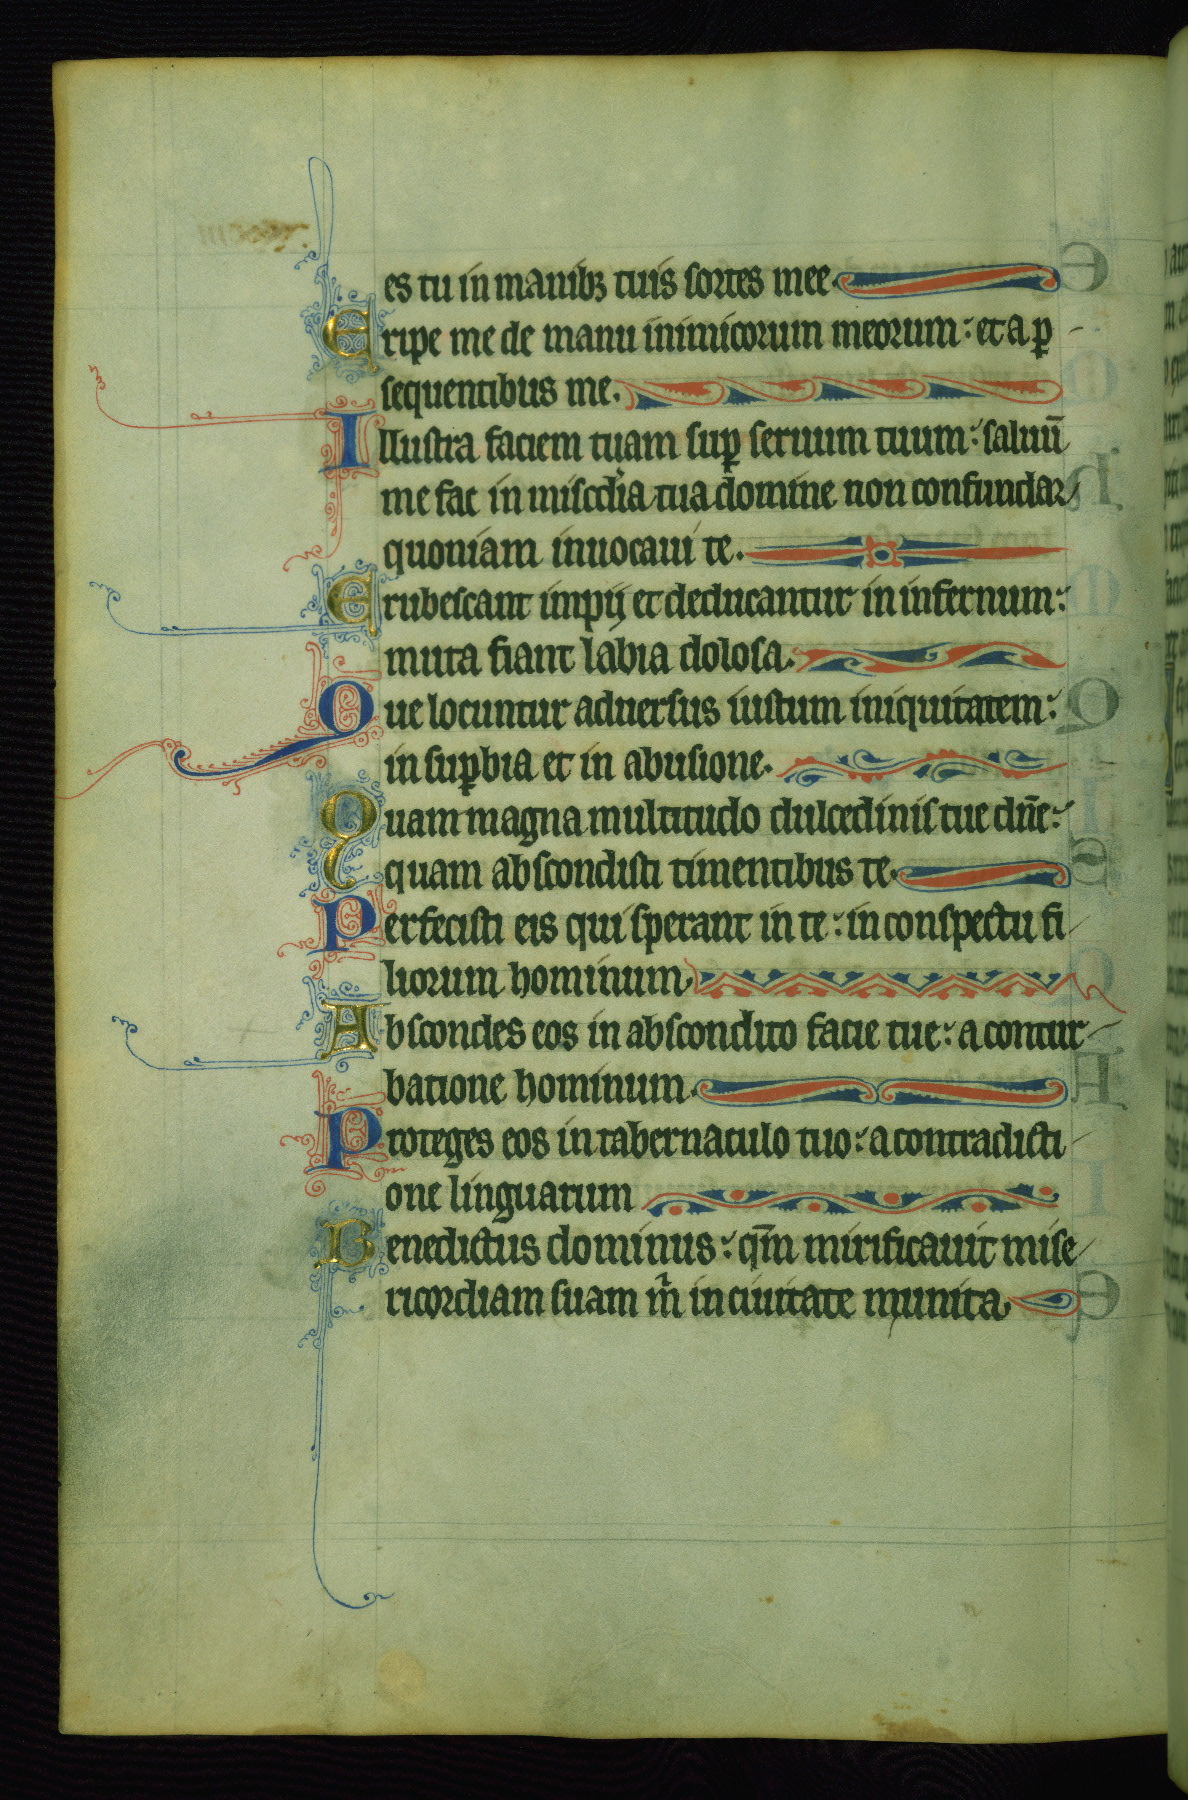 es tu in manibꝫ tuis sortes mee
Eripe me de manu inimicorum meorum: et a ꝑ
sequentibus me.
Illustra faciem tuam suꝑ seruum tuum: saluū
me fac in misc̄dia tua domine non confundar
quoniam inuocaui te.
Erubescant impij et deducantur in infernum:
muta fiant labia dolosa.
Que locuntur aduersus iustum iniquitatem:
in suꝑbia et in abusione.
Quam magna multitudo dulcedinis tue dn̄e:
quam abscondisti timentibus te.
Perfecisti eis qui sperant in te: in conspectu fi
liorum hominum.
Abscondes eos in abscondito facie tue: a contur
batione hominum.
Proteges eos in tabernaculo tuo: a contradicti
one linguarum
Benedictus dominus: qm̄ mirificauit mise
ricordiam suam m̄ in ciuitate munita.